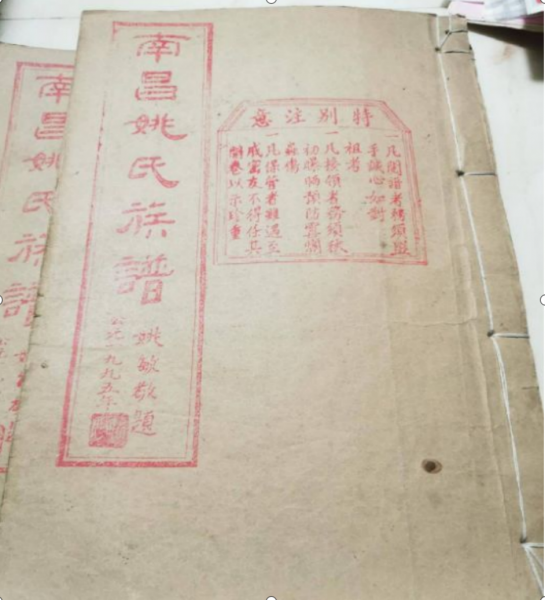 特别注意
一凡閱譜者務須盥
手誠心如對
祖考
一凡接領者務須秋
初曝晒預防霉爛
蟲傷
一凡保管者雖遇至
戚密友不得任其
卷以示珍重
南昌姚氏族譜
姚敏敬題
公元一九九五年
南昌姚氏族譜